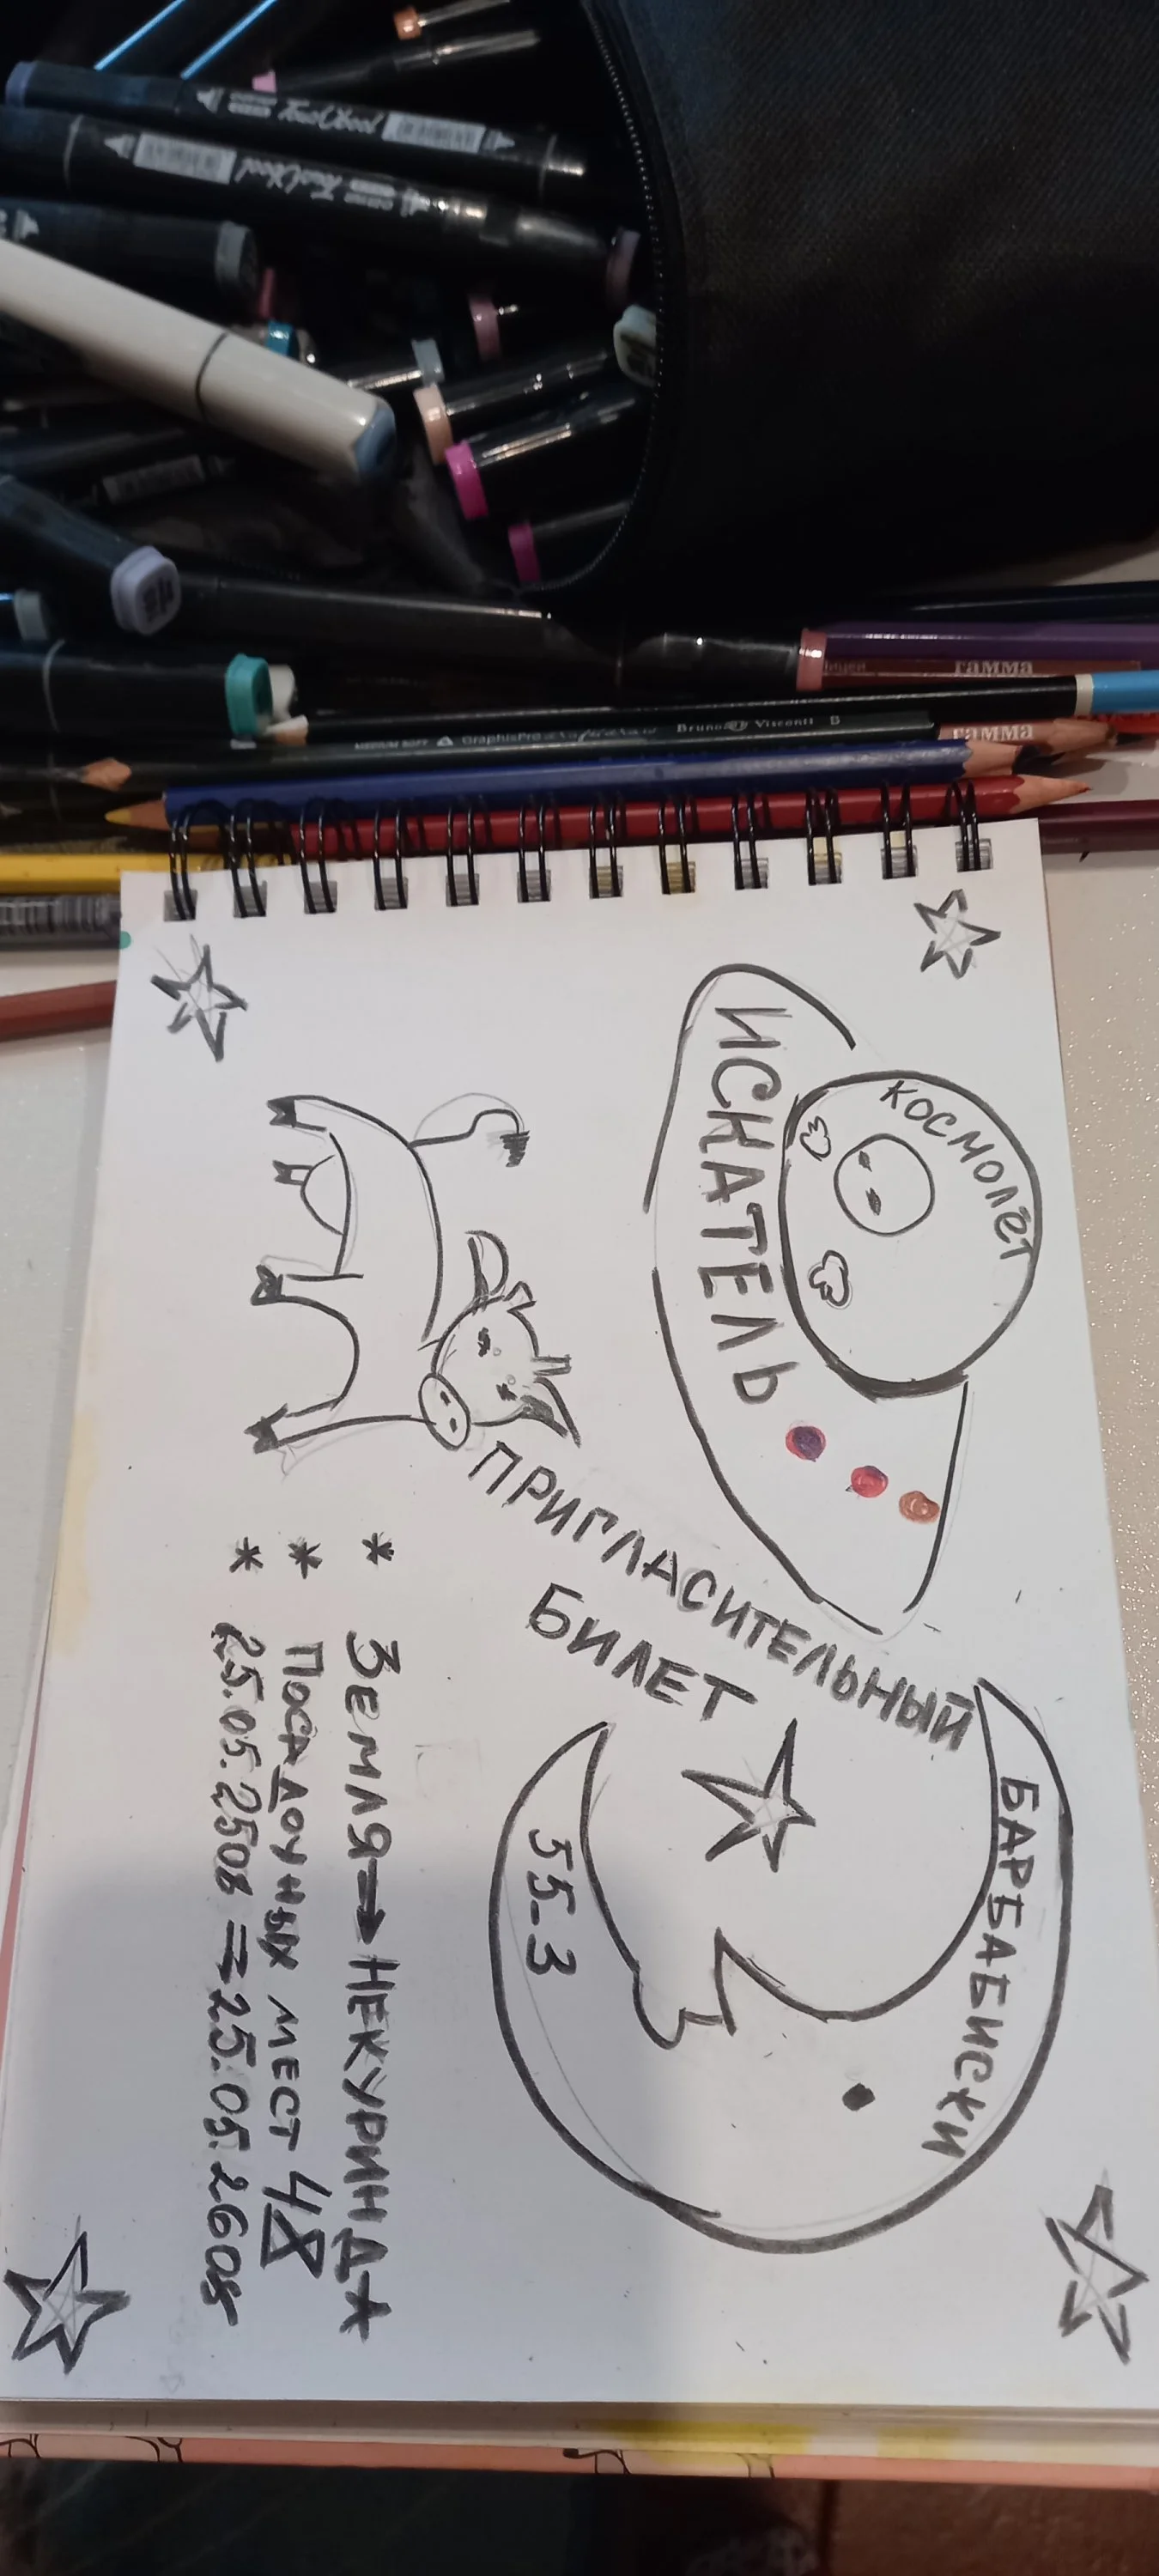 КОСМОЛЁТ
ИСКАТЕЛЬ
ПРИГЛАСИТЕЛЬНЫЙ
БИЛЕТ
БАРБАБИСКИ
55-3
* Земля→НЕКУРИНДА
* Посадочных мест 48
* 25.05.2508 = 25.05.2608
TouchCool
TouchCool
гамма
Bruno Visconti B
GraphixPro
гамма